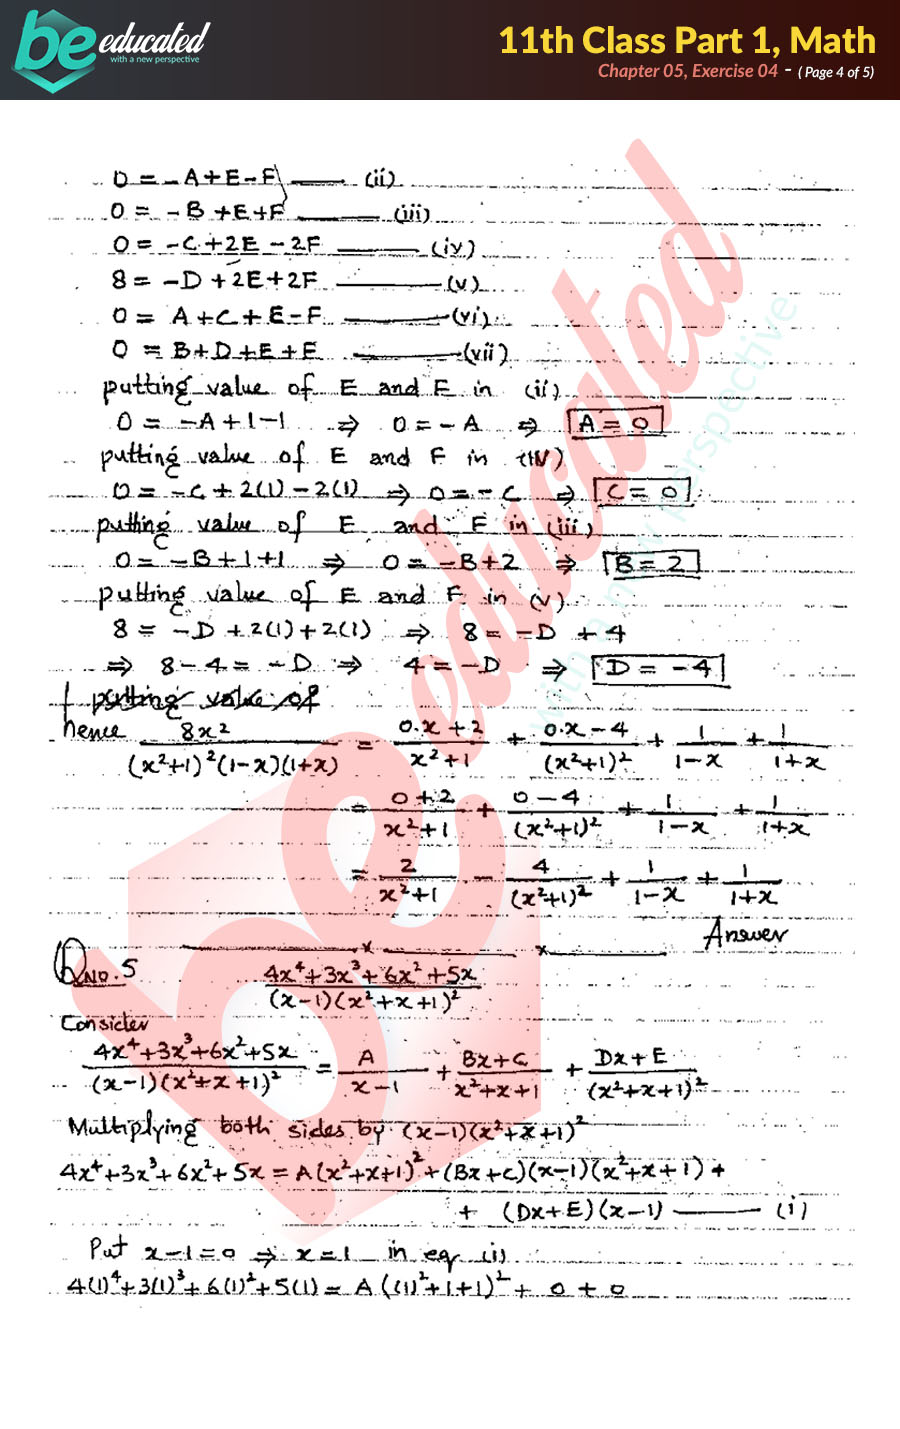 be educated
with a new perspective
11th Class Part 1, Math
Chapter 05, Exercise 04 - ( Page 4 of 5)
0 = -A+E-F ——— (ii)
0 = -B +E+F ——— (iii)
0 = -C+2E - 2F ——— (iv)
8 = -D +2E+2F ——— (v)
0 = A+C+E-F ——— (vi)
0 = B+D+E+F ——— (vii)
putting value of E and F in (ii)
0 = -A+1-1 ⇒ 0 = -A ⇒ A = 0
putting value of E and F in (iv)
0 = -C + 2(1) - 2(1) ⇒ 0 = -C ⇒ C = 0
putting value of E and F in (iii)
0 = -B+1+1 ⇒ 0 = -B+2 ⇒ B = 2
putting value of E and F in (v)
8 = -D +2(1)+2(1) ⇒ 8 = -D + 4
⇒ 8-4 = -D ⇒ 4 = -D ⇒ D = -4
putting value of
hence 8x²/(x²+1)²(1-x)(1+x) = 0.x + 2/x²+1 + 0.x - 4/(x²+1)² + 1/1-x + 1/1+x
= 0+2/x²+1 + 0-4/(x²+1)² + 1/1-x + 1/1+x
= 2/x²+1 - 4/(x²+1)² + 1/1-x + 1/1+x
Answer
Q NO. 5
4x⁴+3x³+6x²+5x/(x-1)(x²+x+1)²
Consider
4x⁴+3x³+6x²+5x/(x-1)(x²+x+1)² = A/x-1 + Bx+C/x²+x+1 + Dx+E/(x²+x+1)²
Multiplying both sides by (x-1)(x²+x+1)²
4x⁴+3x³+6x²+5x = A(x²+x+1)²+(Bx+C)(x-1)(x²+x+1)+
+ (Dx+E)(x-1) ——— (i)
Put x-1=0 ⇒ x=1 in eq (i)
4(1)⁴+3(1)³+6(1)²+5(1) = A((1)²+1+1)² + 0 + 0
be educated
with a new perspective